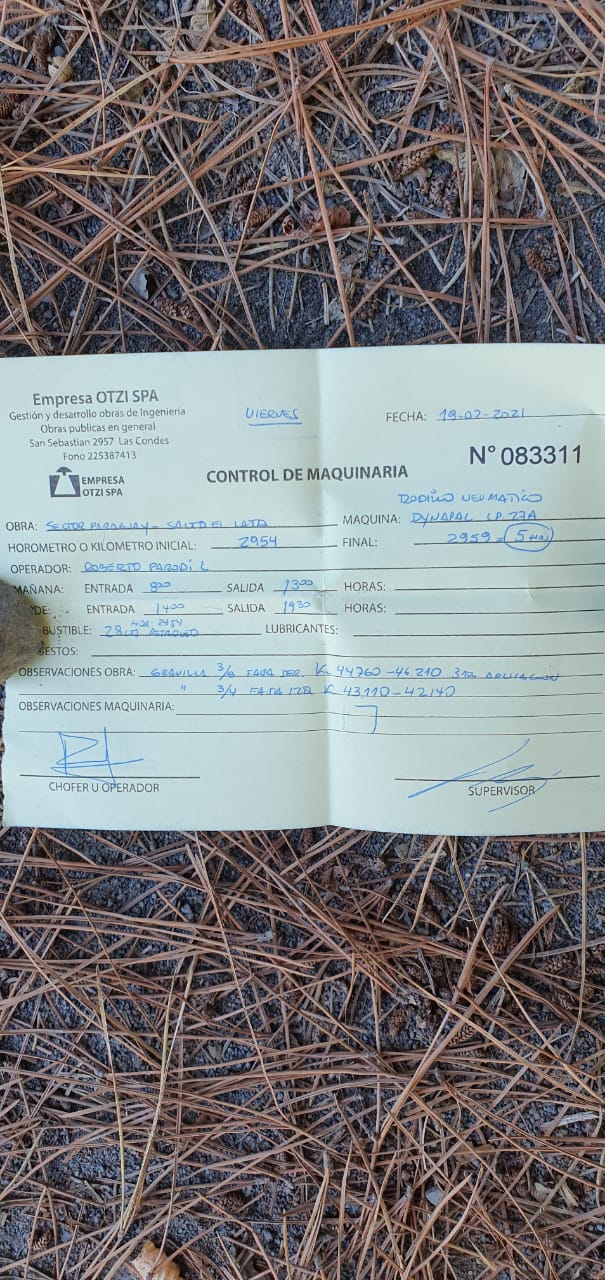 Empresa OTZI SPA
Gestión y desarrollo obras de Ingeniería
Obras publicas en general
San Sebastian 2957 Las Condes
Fono 225387413
EMPRESA
OTZI SPA
VIERNES
FECHA: 19-02-2021
N° 083311
CONTROL DE MAQUINARIA
RODILLO NEUMATICO
OBRA: SECTOR PARAGUAY - SALTO EL LAJA MAQUINA: DYNAPAC CP 27A
HOROMETRO O KILOMETRO INICIAL: 2954 FINAL: 2959 = 5 HRS
OPERADOR: ROBERTO PARODI L
MAÑANA: ENTRADA 8:00 SALIDA 13:00 HORAS:
DE: ENTRADA 14:00 SALIDA 19:30 HORAS:
HOR: 2954
BUSTIBLE: 28 LTS PETROLEO LUBRICANTES:
GESTOS:
OBSERVACIONES OBRA: GRAVILLA 3/8 FAJA DER. K 44760 - 46.210 3RA APLICACION
" 3/4 FAJA IZQ K 43,110 - 42140
OBSERVACIONES MAQUINARIA:
CHOFER U OPERADOR
SUPERVISOR